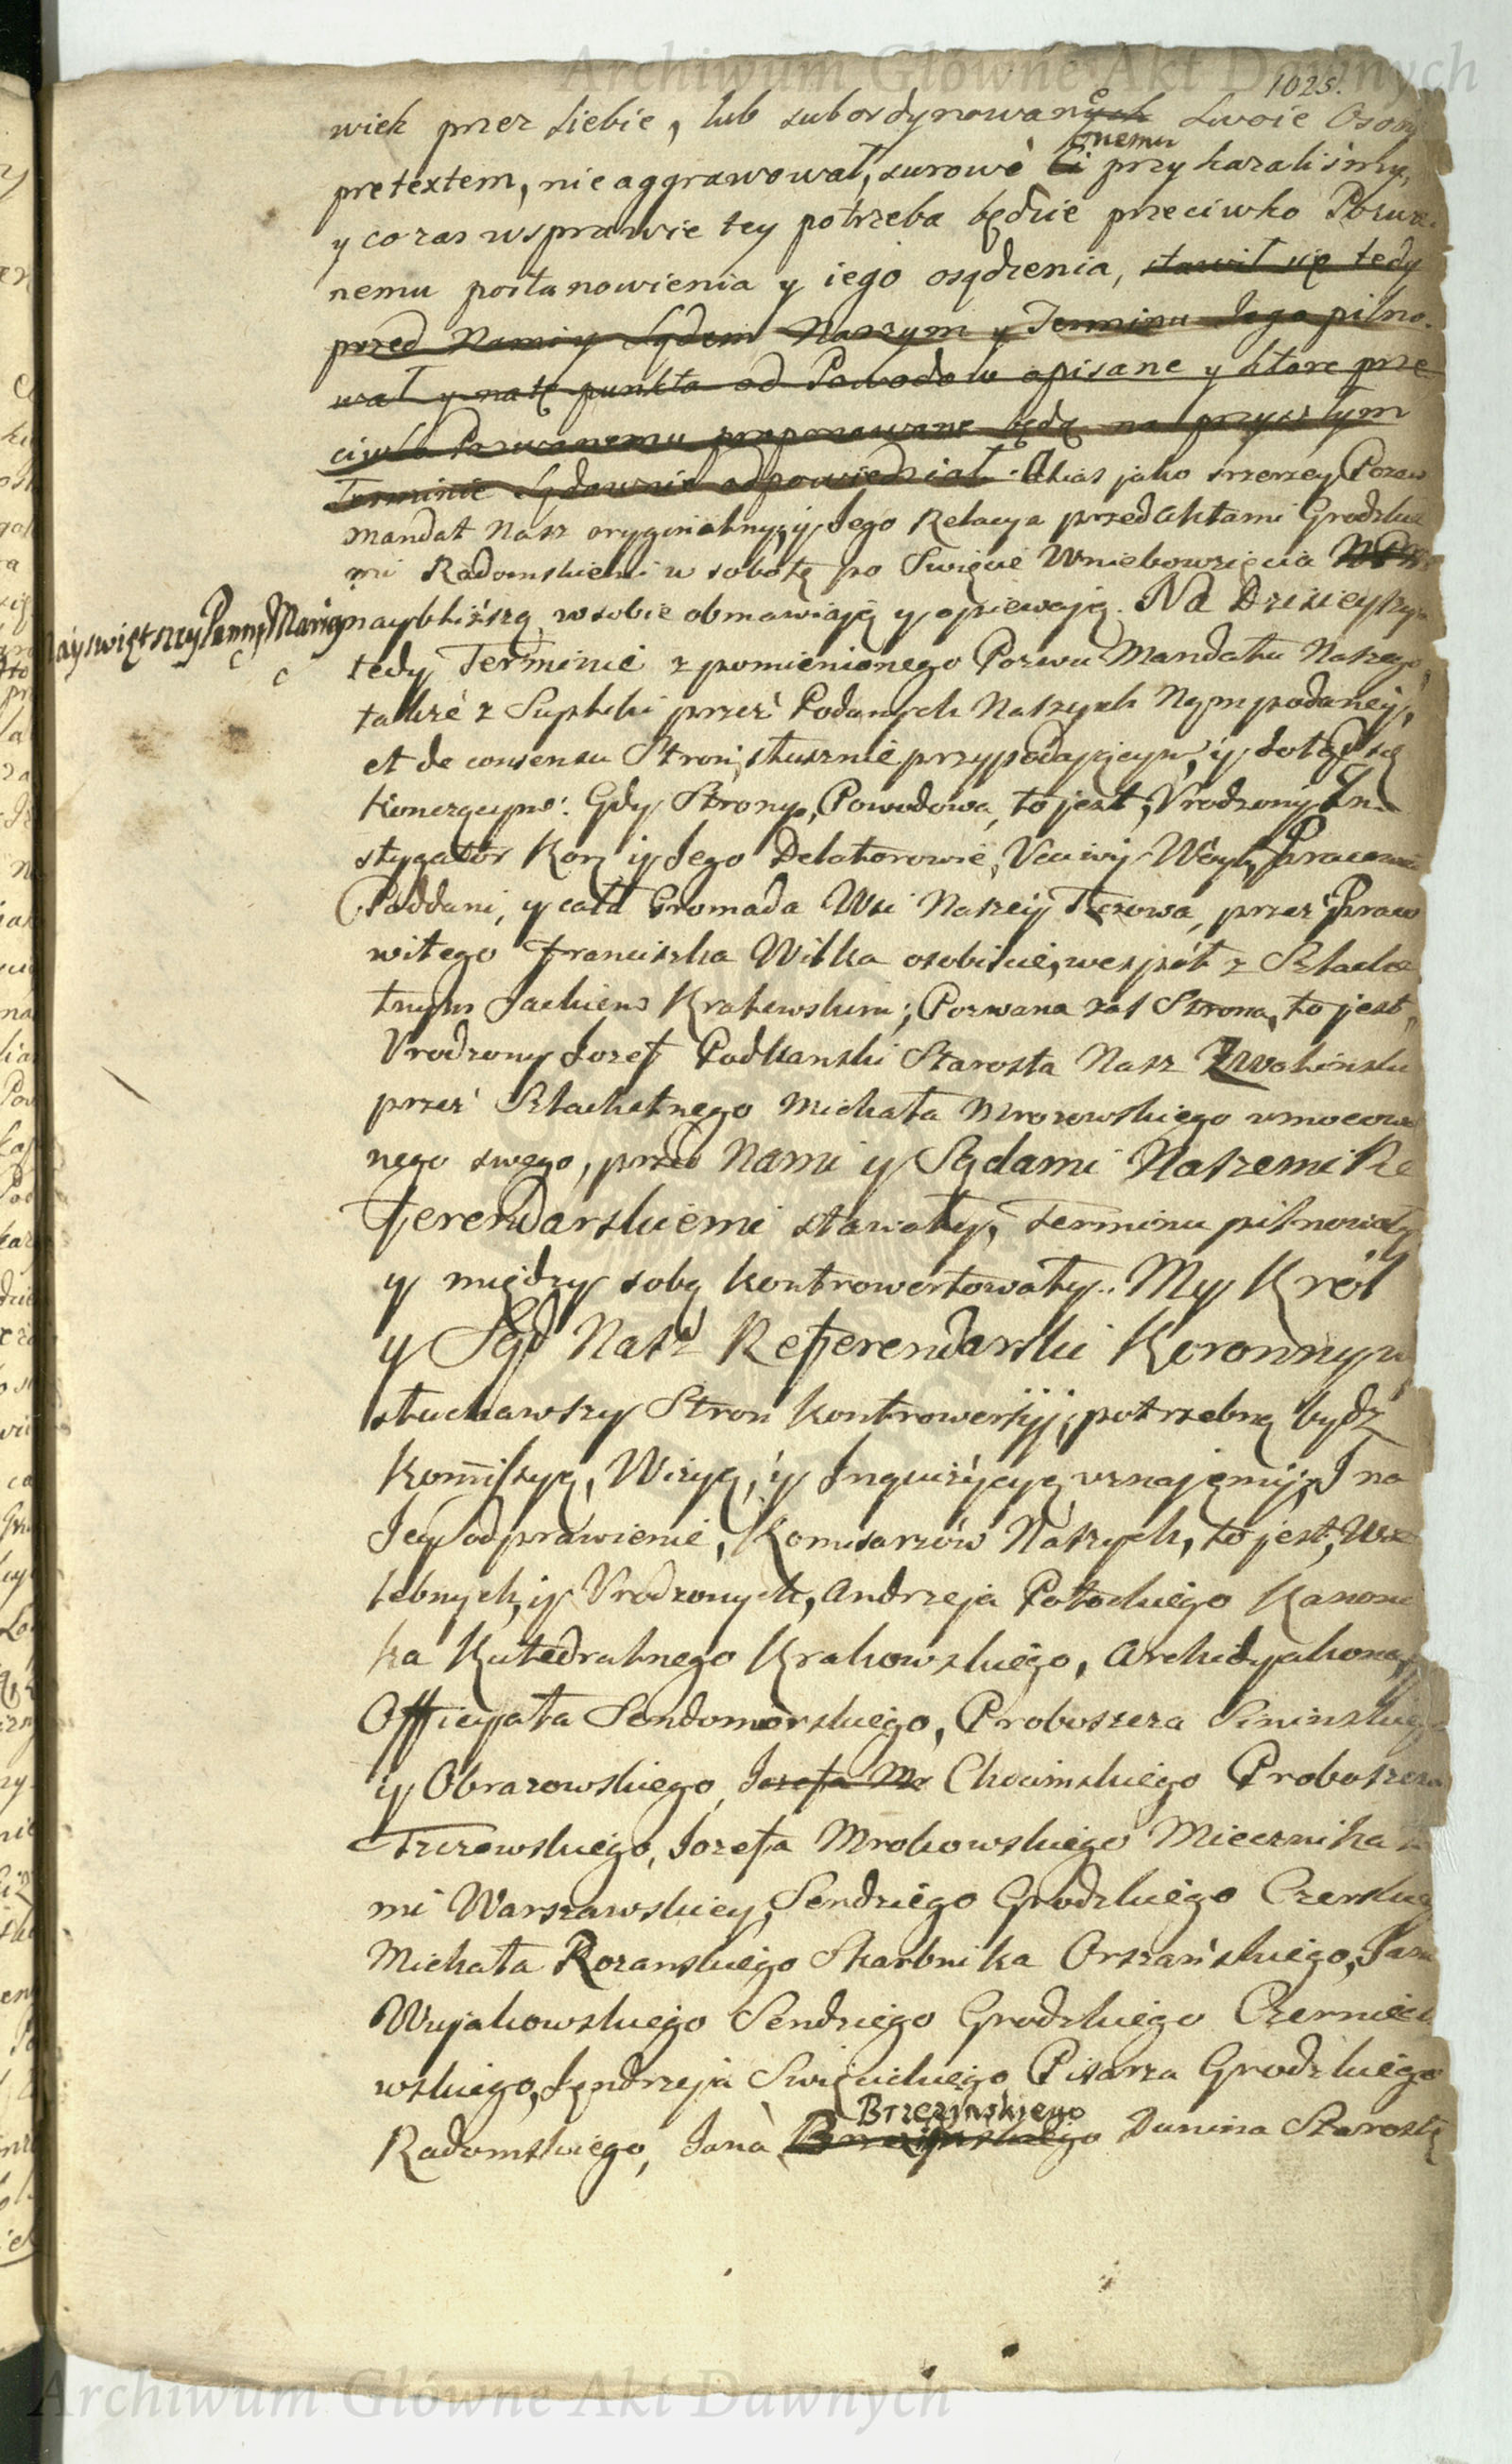 Archiwum Główne Akt Dawnych
1025.
wiek przez siebie, lub subordynowane Swoie Osoby
pretextem, nie aggrawował, surowo onemu przykazalismy,
y co zas w sprawie tey potrzeba będzie przeciwko Pozwa-
nemu postanowienia y iego osądzenia, stawił się tedy
przed Nami y Sądem Naszym y Terminu Jego pilno-
wał y na te punkta od Powodow opisane y ktore prze
ciwko Pozwanemu proponowane będą na przyszłym
Terminie Sądownie odpowiedział. Alias jako szerzey Pozew
mandat Nasz oryginalny, iy Jego Relacya przed Aktami Grodzkie
mi Radomskiemi w sobotę po Swięcie Wniebowzięcia
Nayswiętszey Panny Maryi
naybliższą w sobie obmawiają y opiewają. Na Dzisieyszym
tedy Terminie z pomienionego Pozwu Mandatu Naszego,
także z Supliki przez Podanych Naszych Nam podaney,
et de consensu Stron, słusznie przypadającym, iy dotąd się
Gdy Strony, Powodowa, to jest, Urodzony In
stygator Kor: iy Jego Delatorowie, Uczciwi Woyt, Pracowici
Poddani, y cała Gromada Wsi Naszey Tczowa, przez Praco
witego Franciszka Wilka osobiscie, wespół z Szlache
tnym Jackiem Krakewskim; Pozwana zas Strona, to jest
Urodzony Jozef Podkanski Starosta Nasz Zwolinski
przez Szlachetnego Michała Mrozowskiego umocowa
nego swego, przed Nami y Sądami Naszemi Re
ferendarskiemi stawały, Terminu pilnowały
y między sobą kontrowertowały. My Król
y Sąd Nasz Referendarski Koronny wy
słuchawszy Stron kontrowersyi, potrzebną bydź
Kommissyą, Wizyą, iy Inquizycyą uznajemy; I na
Jey odprawienie, Komisarzów Naszych, to jest, Wie
lebnych, iy Urodzonych, Andrzeja Potockiego Kanoni
ka Katedralnego Krakowskiego, Archidyakona,
Officyała Sendomirskiego, Proboszcza Sininskiego
iy Obrazowskiego, Jozefa Mr Chocimskiego Proboszcza
Tczewskiego, Jozefa Mrokowskiego Miecznika
mi Warszawskiey, Sendziego Grodzkiego Czerskiego
Michała Rozanskiego Skarbnika Orszańskiego, Jana
Wujakowskiego Sendziego Grodzkiego Czerniech
wskiego, Jendrzeja Swięcickiego Pisarza Grodzkiego
Radomskiego, Jana Brzezinskiego Dunina Starostę
Archiwum Główne Akt Dawnych